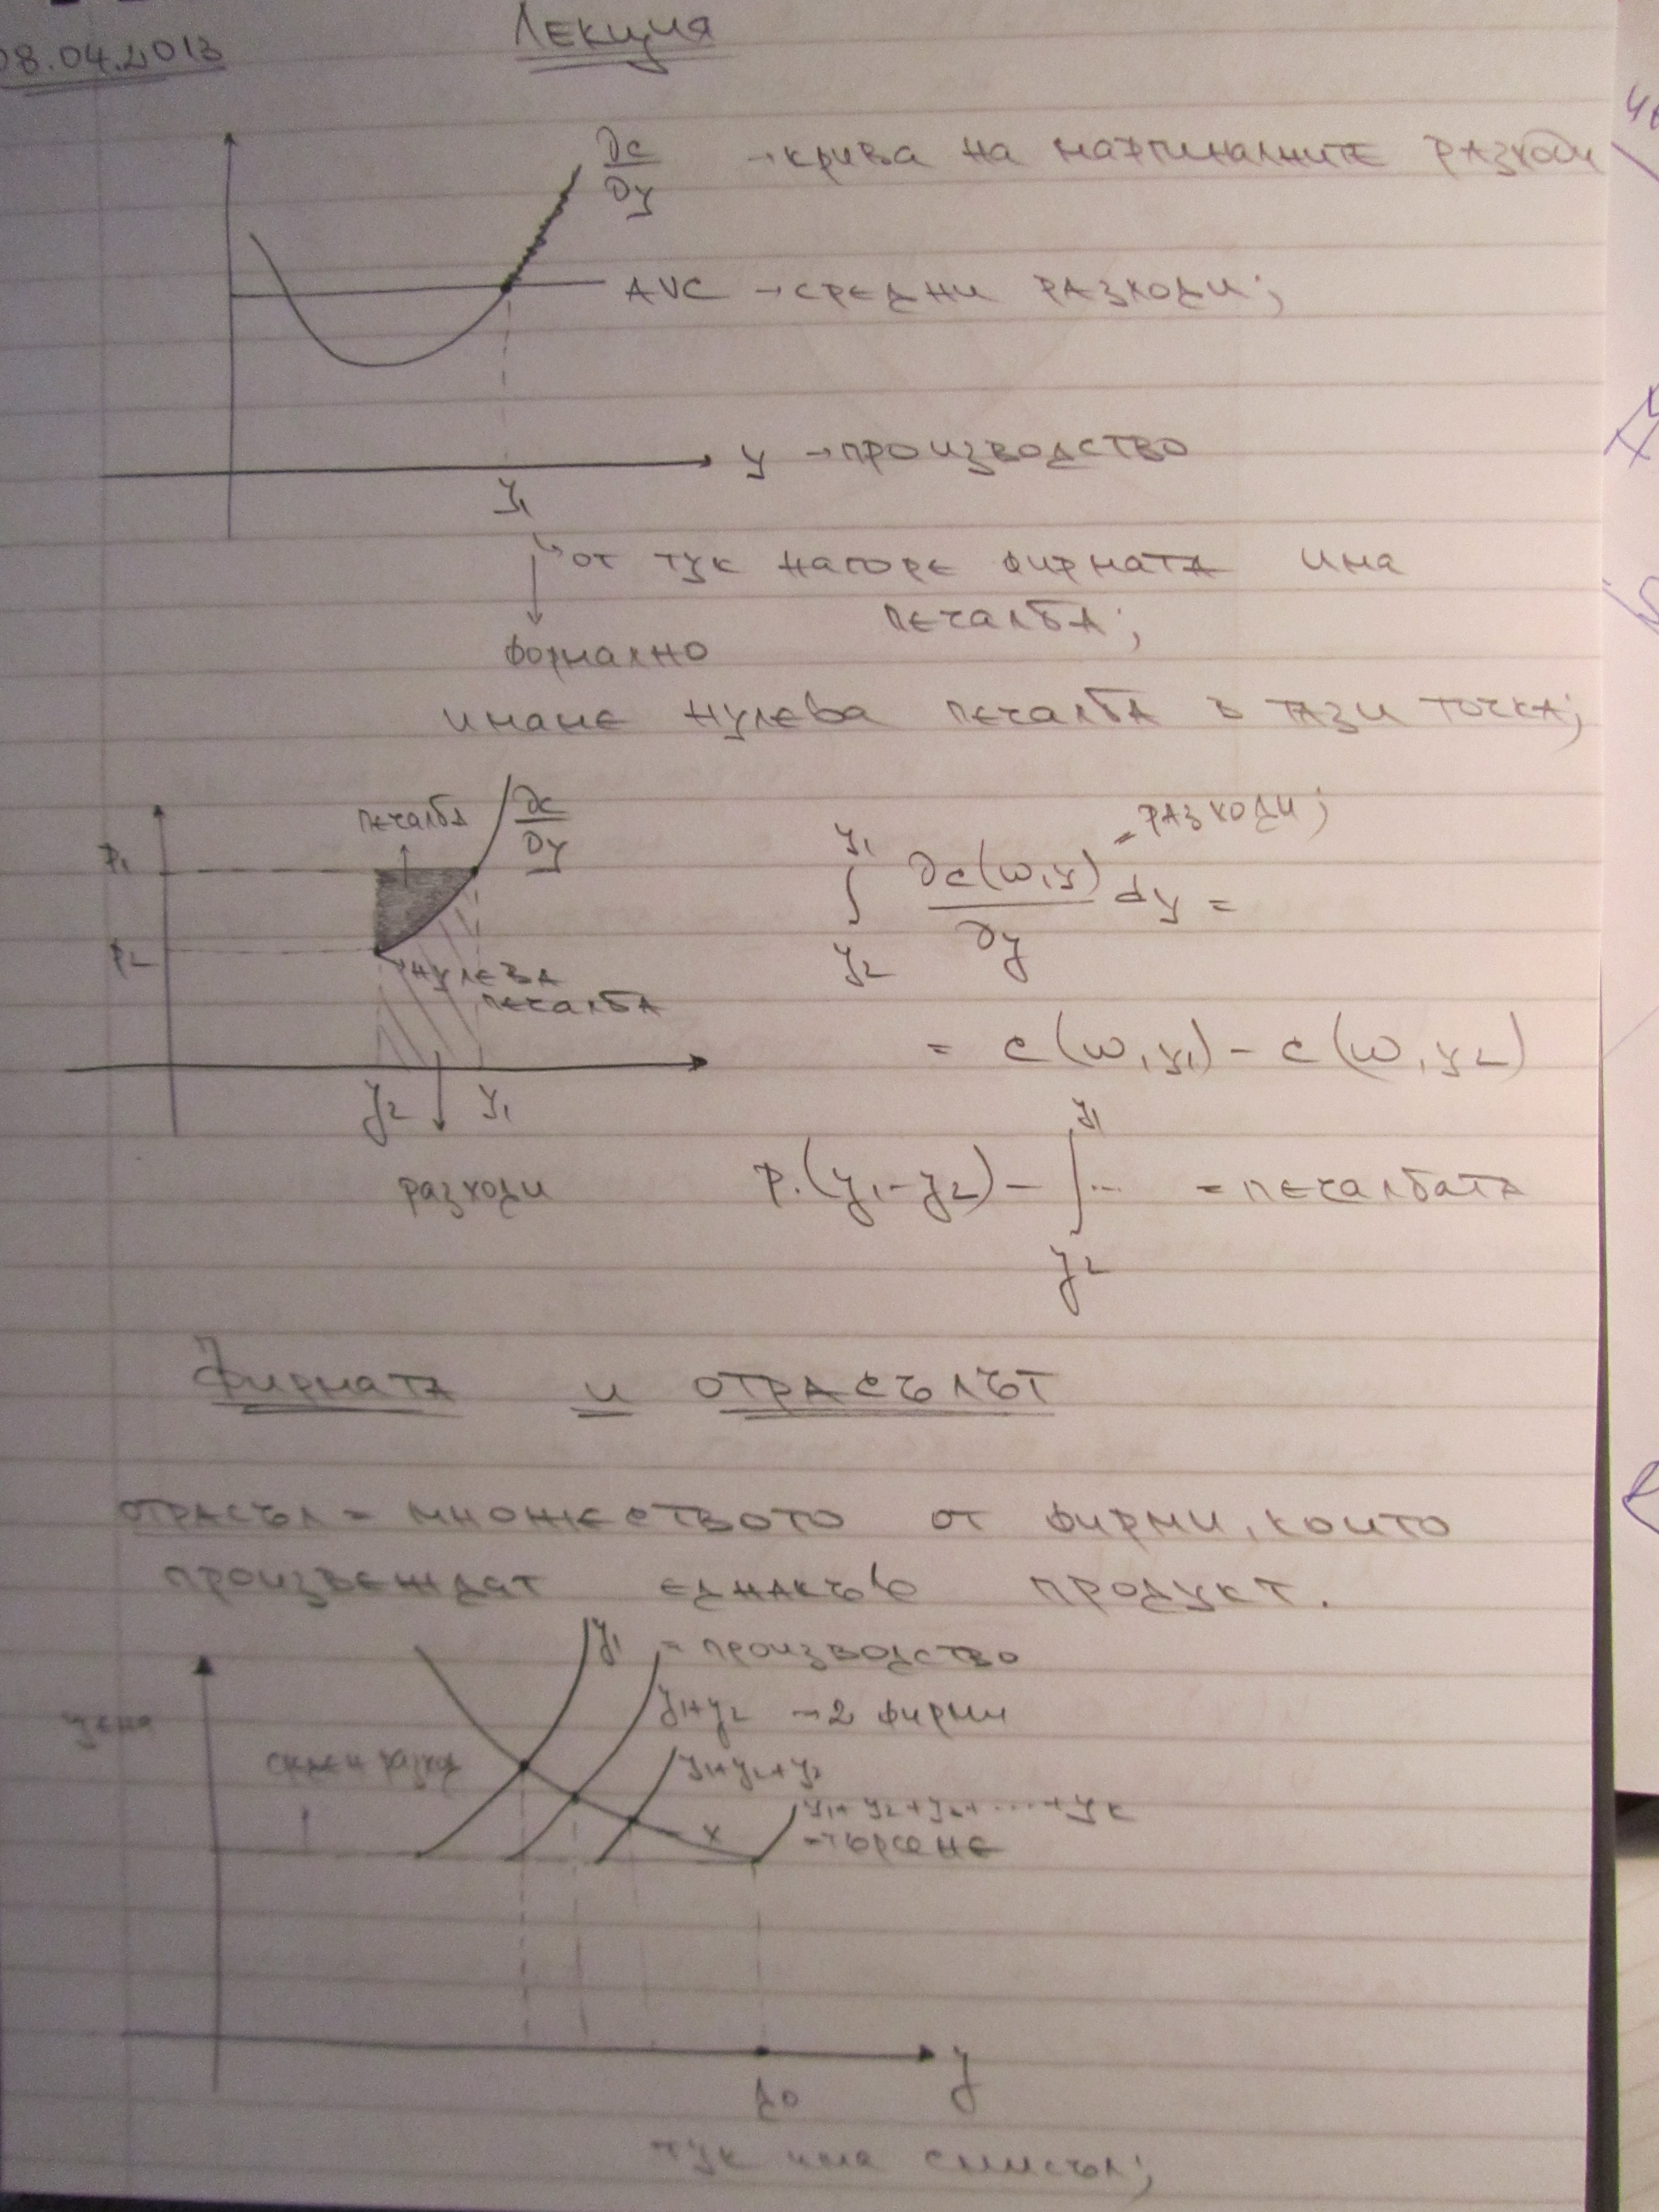 08.04.2013
Лекция
∂c/∂y → крива на маргиналните разходи
AVC → средни разходи;
y → производство
y₁
от тук нагоре фирмата има
печалба;
формално
имаме нулева печалба в тази точка;
печалба
∂c/∂y
p₁
p₂
нулева
печалба
y₂ y₁
разходи
∫_{y₂}^{y₁} ∂c(w,y)/∂y dy =
= разходи;
= c(w,y₁) - c(w,y₂)
p.(y₁-y₂) - ∫_{y₂}^{y₁} ... = печалбата
Фирмата и отрасълът
отрасъл = множеството от фирми, които
произвеждат еднакъв продукт.
цена
y₁ = производство
y₁+y₂ → 2 фирми
y₁+y₂+y₂
y₁+y₂+y₂+....+yк
x
- търсене
y
до
тук има смисъл;